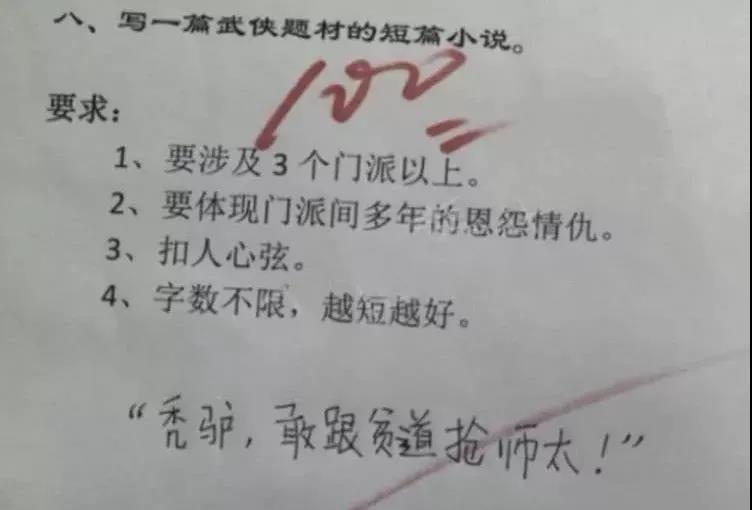 八、写一篇武侠题材的短篇小说。
100
要求:
1、要涉及 3 个门派以上。
2、要体现门派间多年的恩怨情仇。
3、扣人心弦。
4、字数不限，越短越好。
“秃驴，敢跟贫道抢师太！”